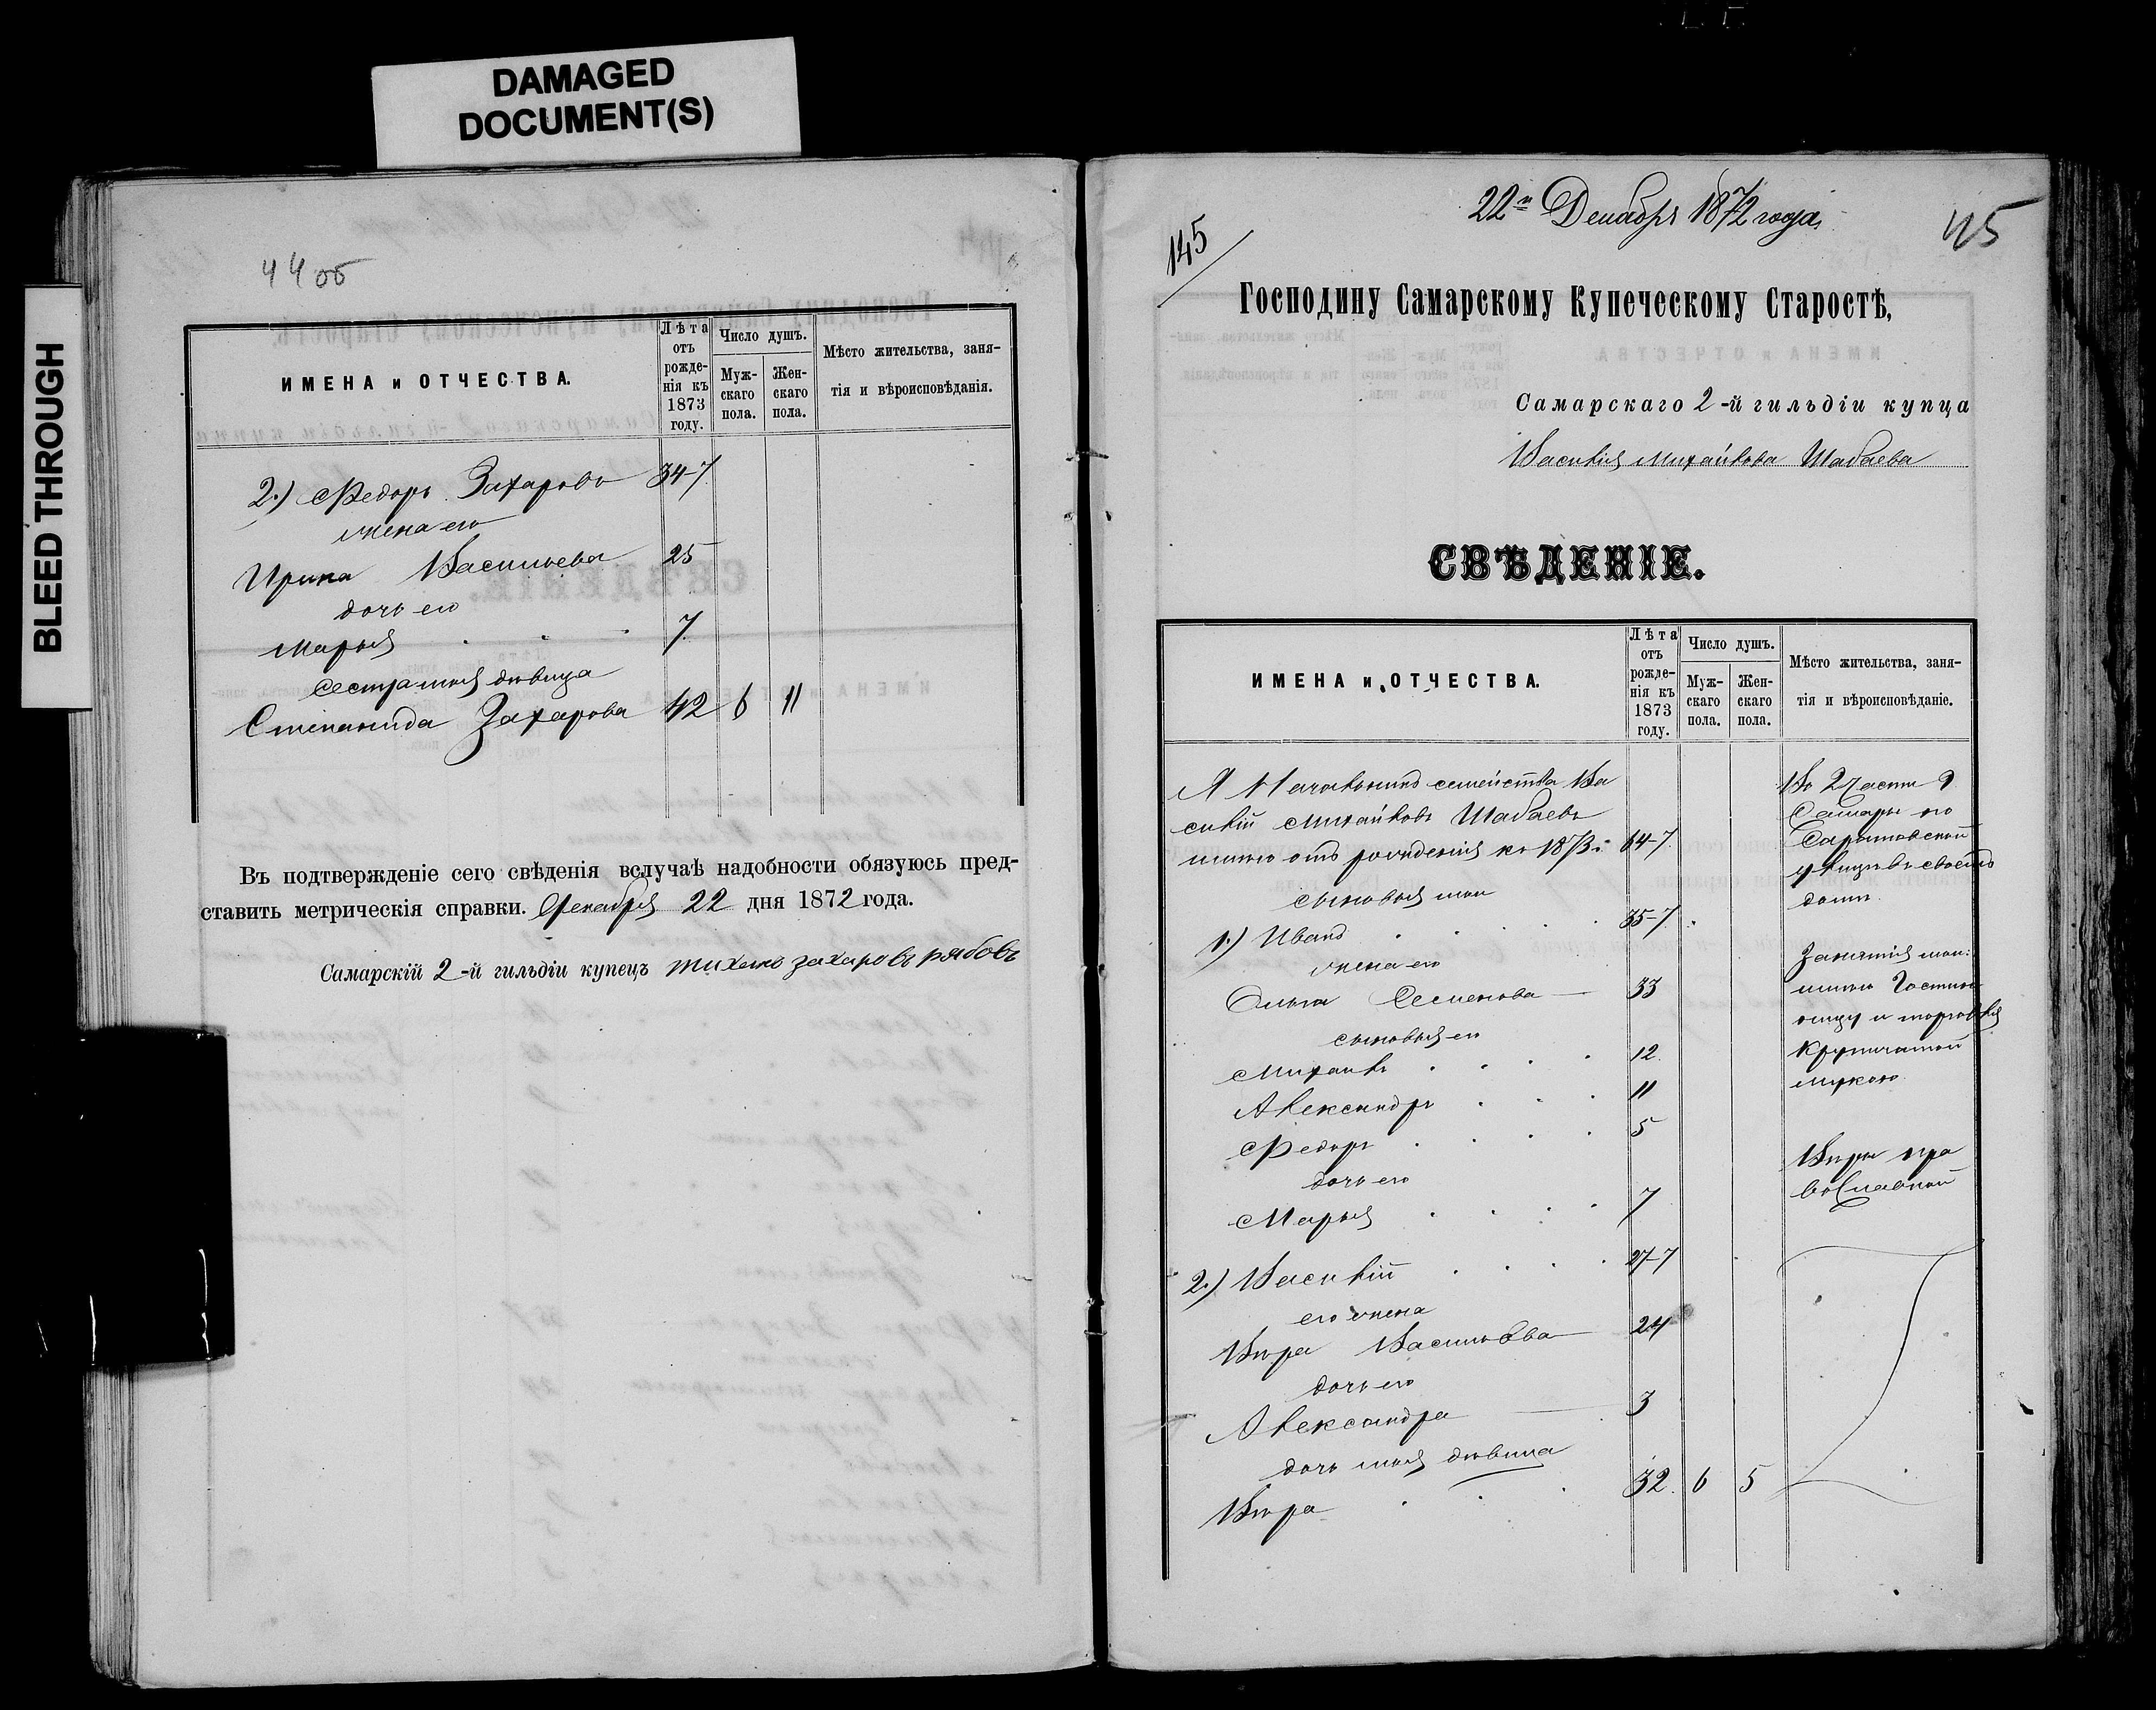 DAMAGED
DOCUMENT(S)
BLEED THROUGH
44 об
ИМЕНА и ОТЧЕСТВА.
Лѣта отъ рожденія къ 1873 году.
Число душъ.
Мужскаго пола.
Женскаго пола.
Мѣсто жительства, заня-
тія и вѣроисповѣданія.
2.) Федоръ Захаровъ 34-7.
жена его
Ирина Васильева 25
дочь его
Марья 7.
Сестра моя дѣвица
Степанида Захарова 42 6 11
Въ подтвержденіе сего свѣденія вслучаѣ надобности обязуюсь пред-
ставить метрическія справки. Декабря 22 дня 1872 года.
Самарскій 2-й гильдіи купецъ тихонъ захаровъ рябовъ
22го Декабря 1872 года.
145
45
Господину Самарскому Купеческому Старостѣ,
Самарскаго 2-й гильдіи купца
Василія Михайлова Шабаева
СВѢДЕНІЕ.
ИМЕНА и ОТЧЕСТВА.
Лѣта отъ рожденія къ 1873 году.
Число душъ.
Мужскаго пола.
Женскаго пола.
Мѣсто жительства, заня-
тія и вѣроисповѣданіе.
Я Начальникъ семейства Ва
силій Михайловъ Шабаевъ
отъ рожденія къ 1873 г. 64-7.
сыновья мои
1.) Иванъ 35-7.
жена его
Ольга Семенова 33
сыновья его
Михаилъ 12.
Александръ 11
Федоръ 5
дочь его
Марья 7
2.) Василій 27-7
его жена
Вѣра Васильева 24
дочь его
Александра 3
дочь моя дѣвица
Вѣра 32. 6 5
Во 2 части г
Самары по
Саратовской
улицѣ въ своемъ
домѣ.
Занятія
имѣю Гостин
ницу и торговля
Крупчатой
мукою.
Вѣры пра
вославной